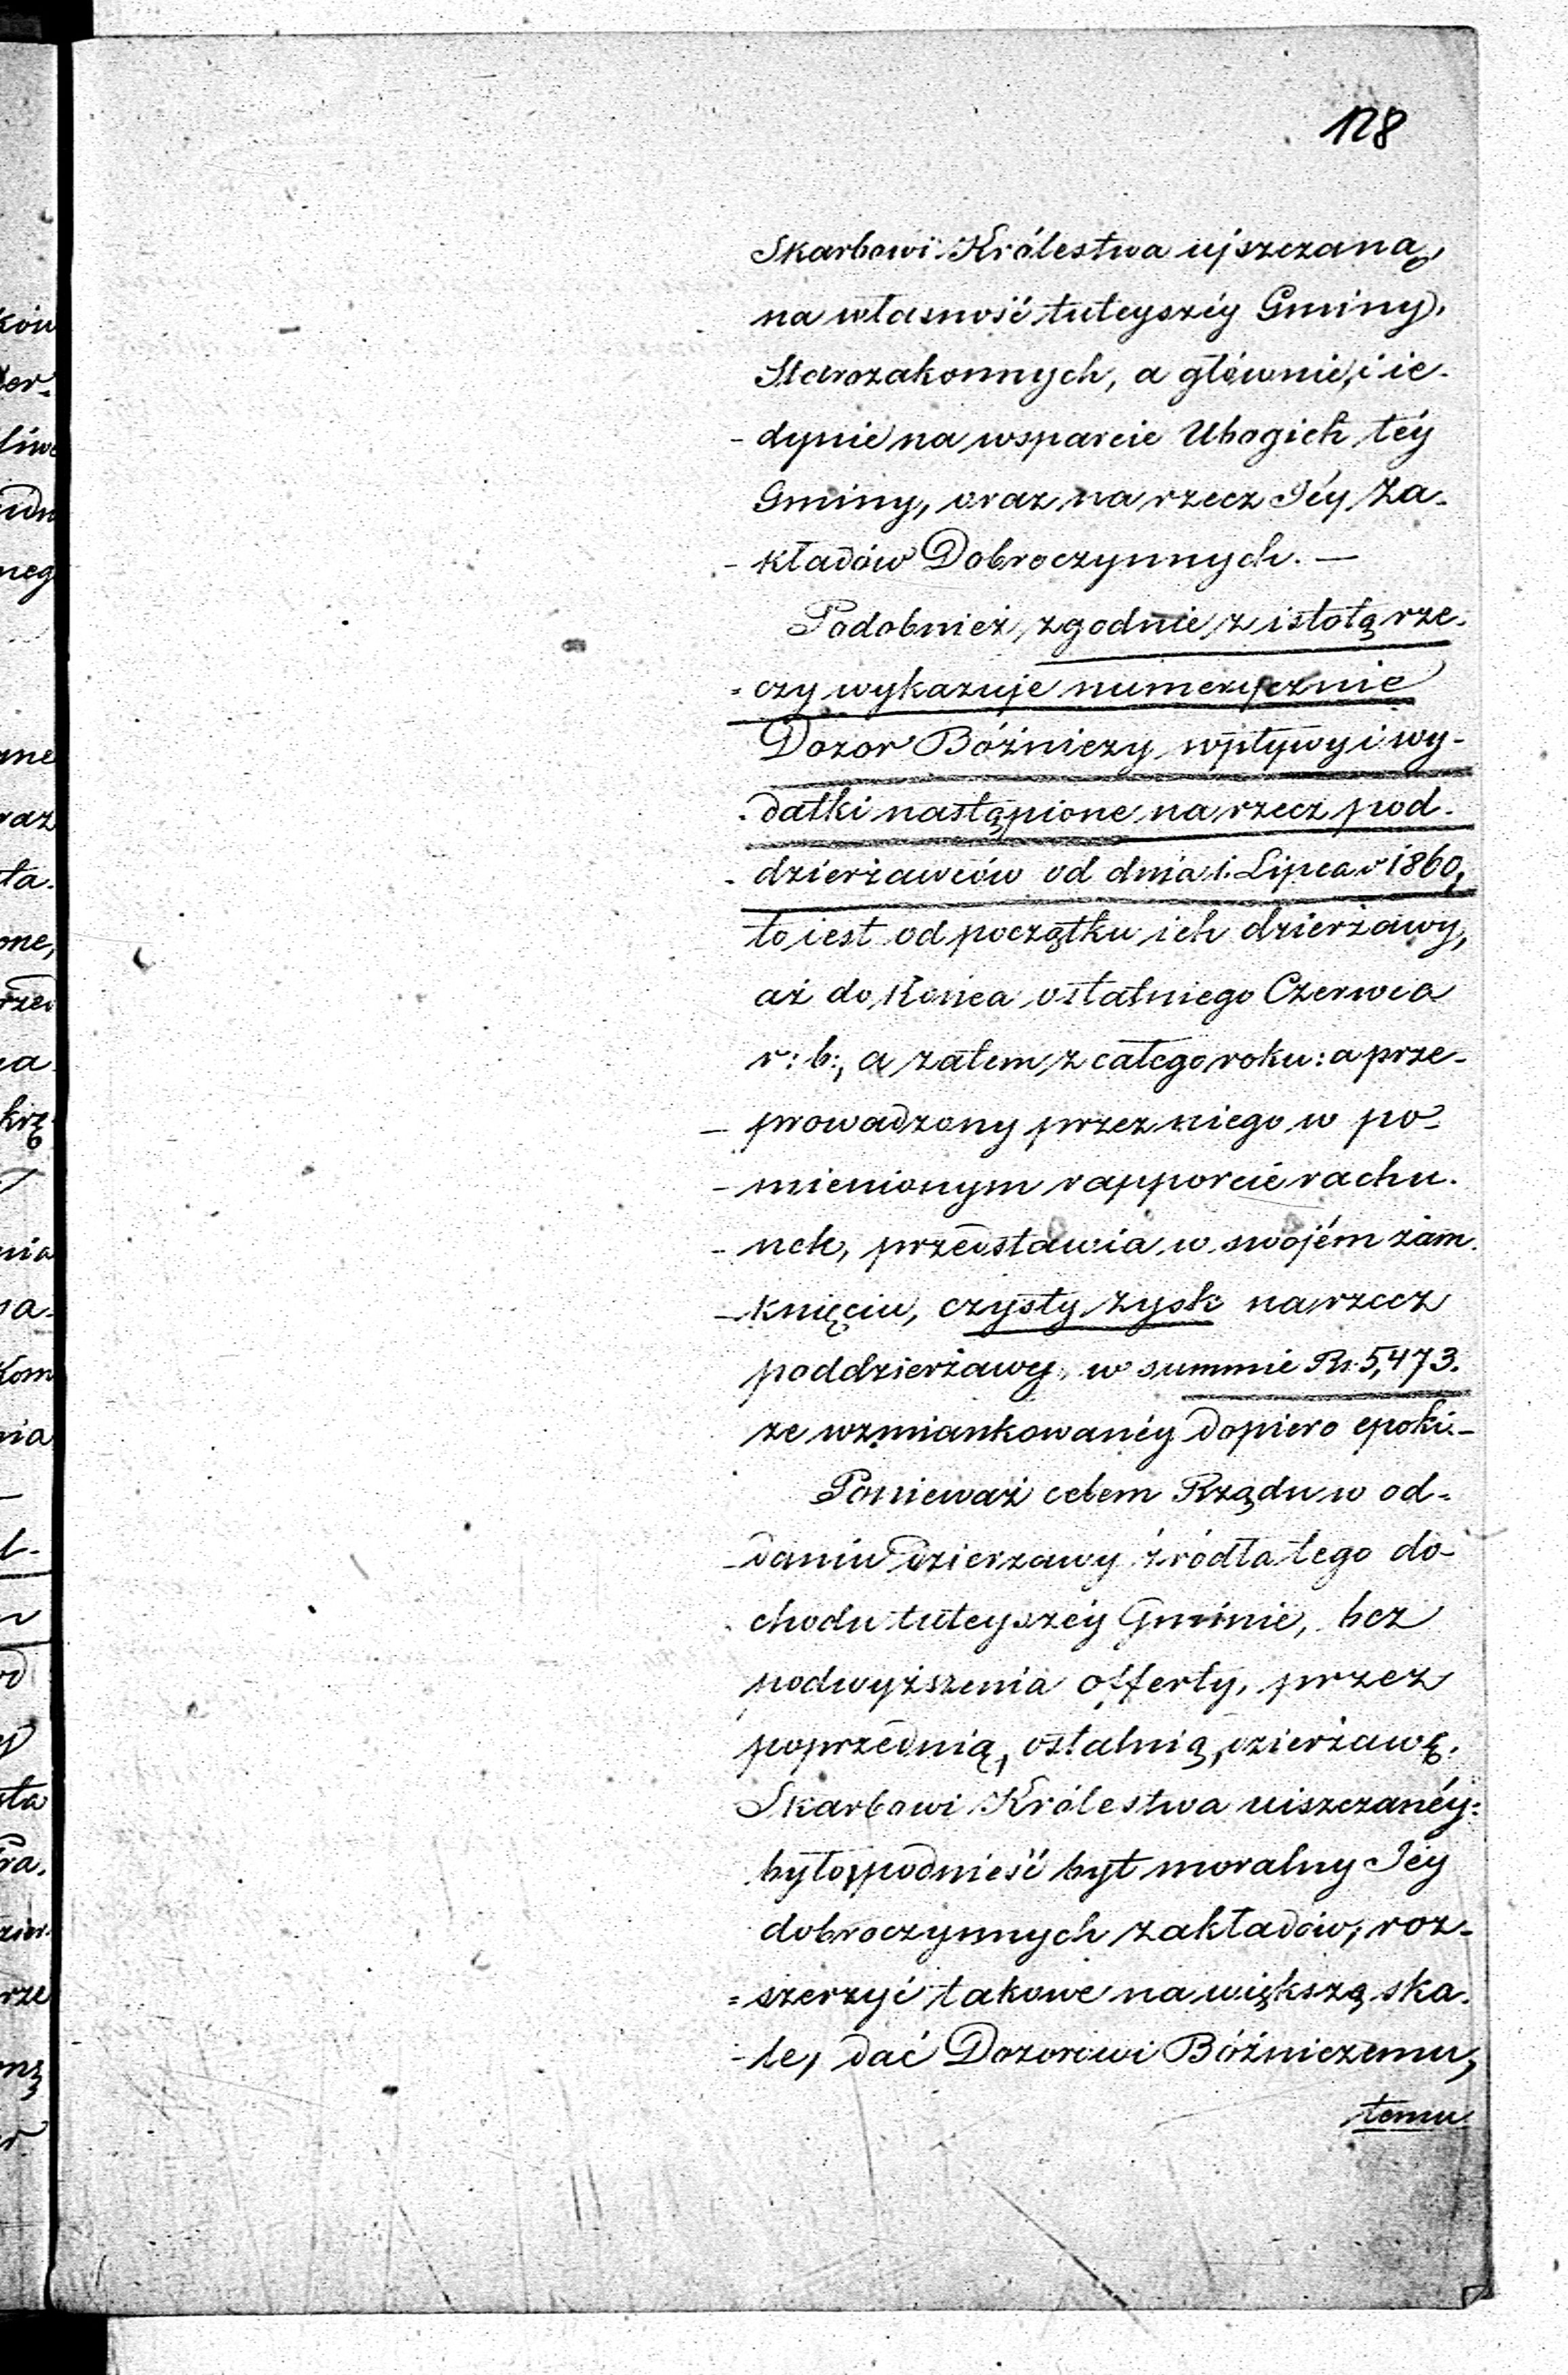 128
Skarbowi Królestwa ujszczaną,
na własność tuteyszéy Gminy
Starozakonnych, a głównie, i ie-
- dynie na wsparcie Ubogich téy
Gminy, oraz na rzecz Jéy Za-
- kładów Dobroczynnych. —
Podobnież, zgodnie z istotą rze-
= czy wykazuje numerycznie
Dozor Bóźniczy, wpływy i wy-
- datki nastąpione na rzecz pod-
- dzierżawców od dnia 1. Lipca r 1860,
to iest od początku ich dzierżawy,
aż do Końca ostatniego Czerwca
r: b:, a zatem z całego roku: a prze-
- prowadzony przez niego w po-
- mienionym rapporcie rachu-
- nek, przedstawia w swojém zam-
- knięciu, czysty zysk na rzecz
poddzierżawy, w summie Rs. 5,473.
ze wzmiankowanéy dopiero epoki. -
Ponieważ celem Rządu w od-
- daniu dzierzawy źródła tego do-
- chodu tuteyszéy Gminie, bez
podwyższenia offerty, przez
poprzednią, ostatnią, dzierżawę,
Skarbowi Królestwa uiszczanéy:
było, podnieść byt moralny Jéy
dobroczynnych zakładów, roz-
= szerzyć takowe na większą ska-
- le, dać Dozorowi Bóźniczemu,
temu